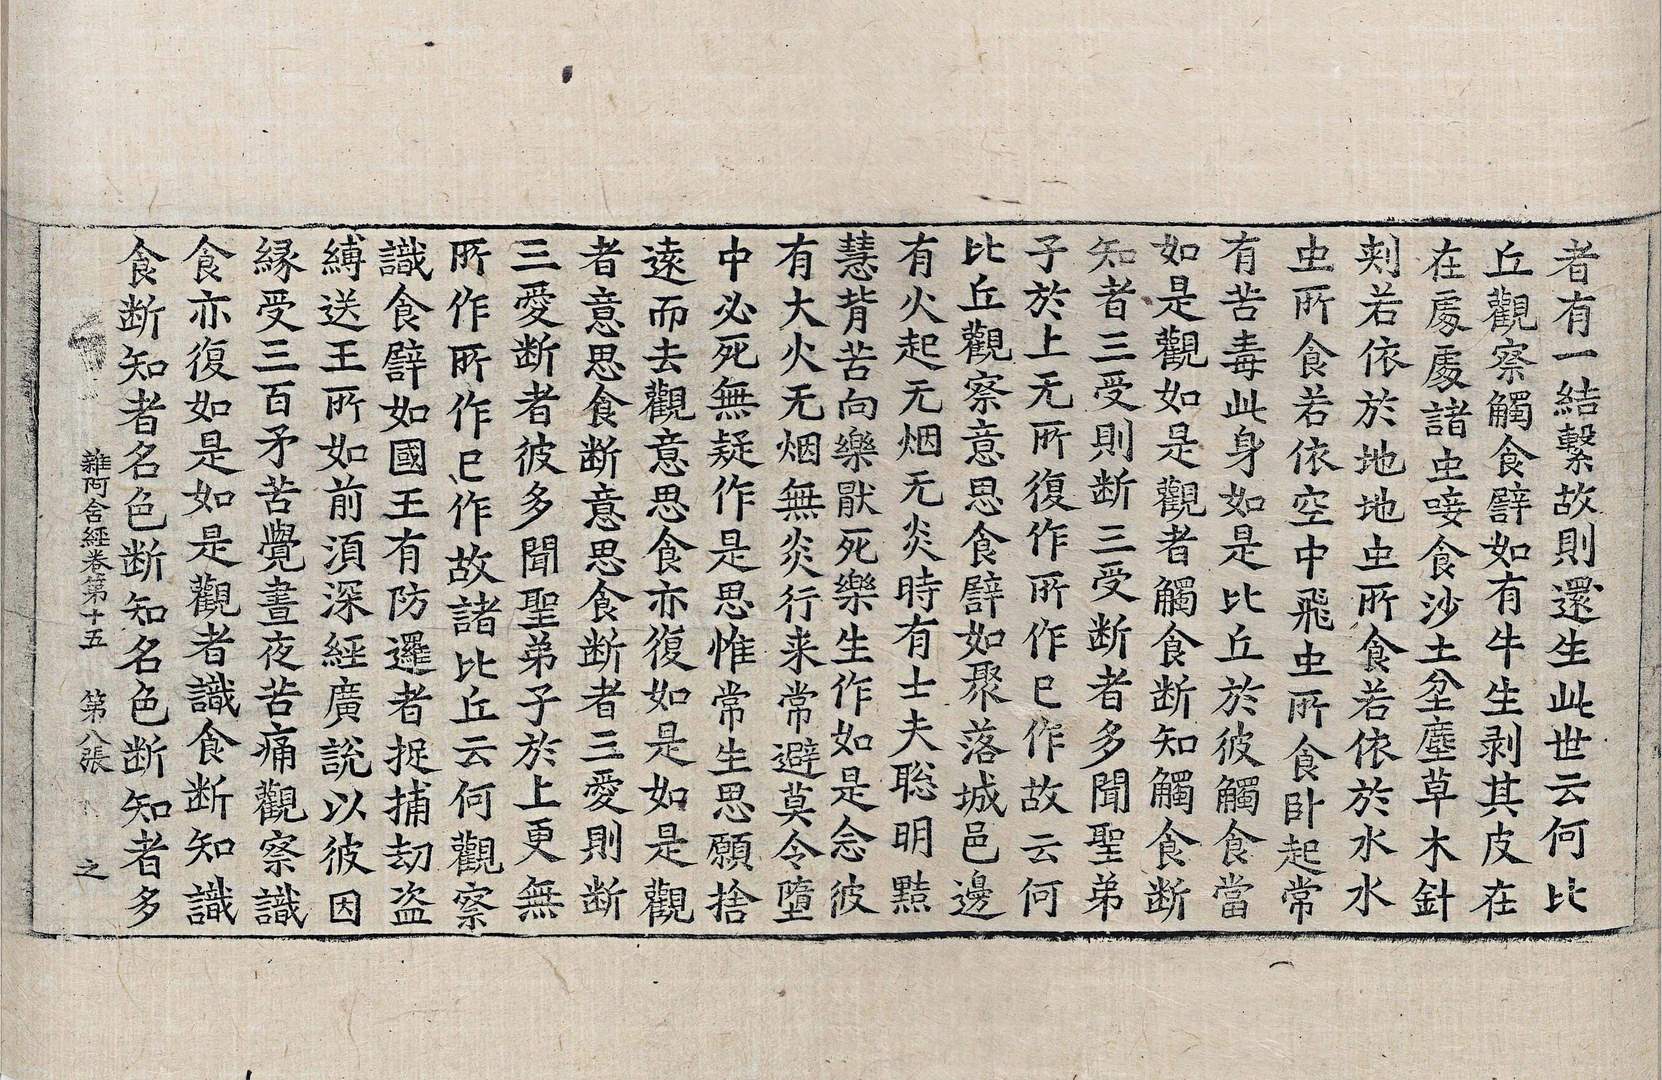 者有一結繫故則還生此世云何比
丘觀察觸食譬如有牛生剥其皮在
在處處諸虫唼食沙土坌塵草木針
刾若依於地地虫所食若依於水水
虫所食若依空中飛虫所食卧起常
有苦毒此身如是比丘於彼觸食當
如是觀如是觀者觸食断知觸食断
知者三受則断三受断者多聞聖弟
子於上无所復作所作已作故云何
比丘觀察意思食譬如聚落城邑邊
有火起无烟无炎時有士夫聡明黠
慧背苦向樂猒死樂生作如是念彼
有大火无烟無炎行来常避莫令墮
中必死無疑作是思惟常生思願捨
遠而去觀意思食亦復如是如是觀
者意思食断意思食断者三愛則断
三愛断者彼多聞聖弟子於上更無
所作所作已作故諸比丘云何觀察
識食譬如國王有防邏者捉捕劫盗
縛送王所如前湏深經廣說以彼因
縁受三百矛苦覺晝夜苦痛觀察識
食亦復如是如是觀者識食断知識
食断知者名色断知名色断知者多
雜阿含經卷第十五 第八張 之